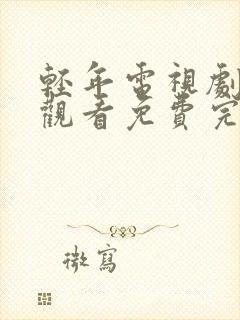 輕年電視劇
觀看免費完
微寫